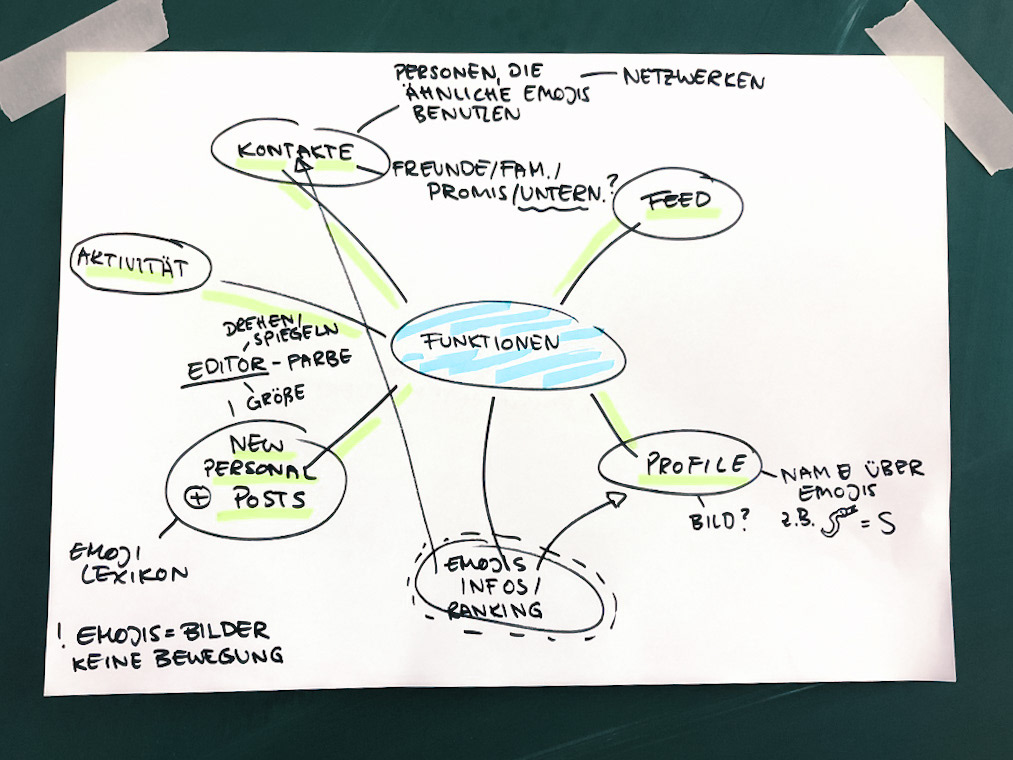 PERSONEN, DIE
ÄHNLICHE EMOJIS
BENUTZEN
NETZWERKEN
KONTAKTE
FREUNDE/FAM./
PROMIS/UNTERN.?
FEED
AKTIVITÄT
FUNKTIONEN
DREHEN/
SPIEGELN
EDITOR - FARBE
GRÖßE
NEW
PERSONAL
+ POSTS
PROFILE
NAME ÜBER
EMOJIS
Z.B. = S
BILD?
EMOJI
LEXIKON
EMOJIS
INFOS/
RANKING
! EMOJIS = BILDER
KEINE BEWEGUNG